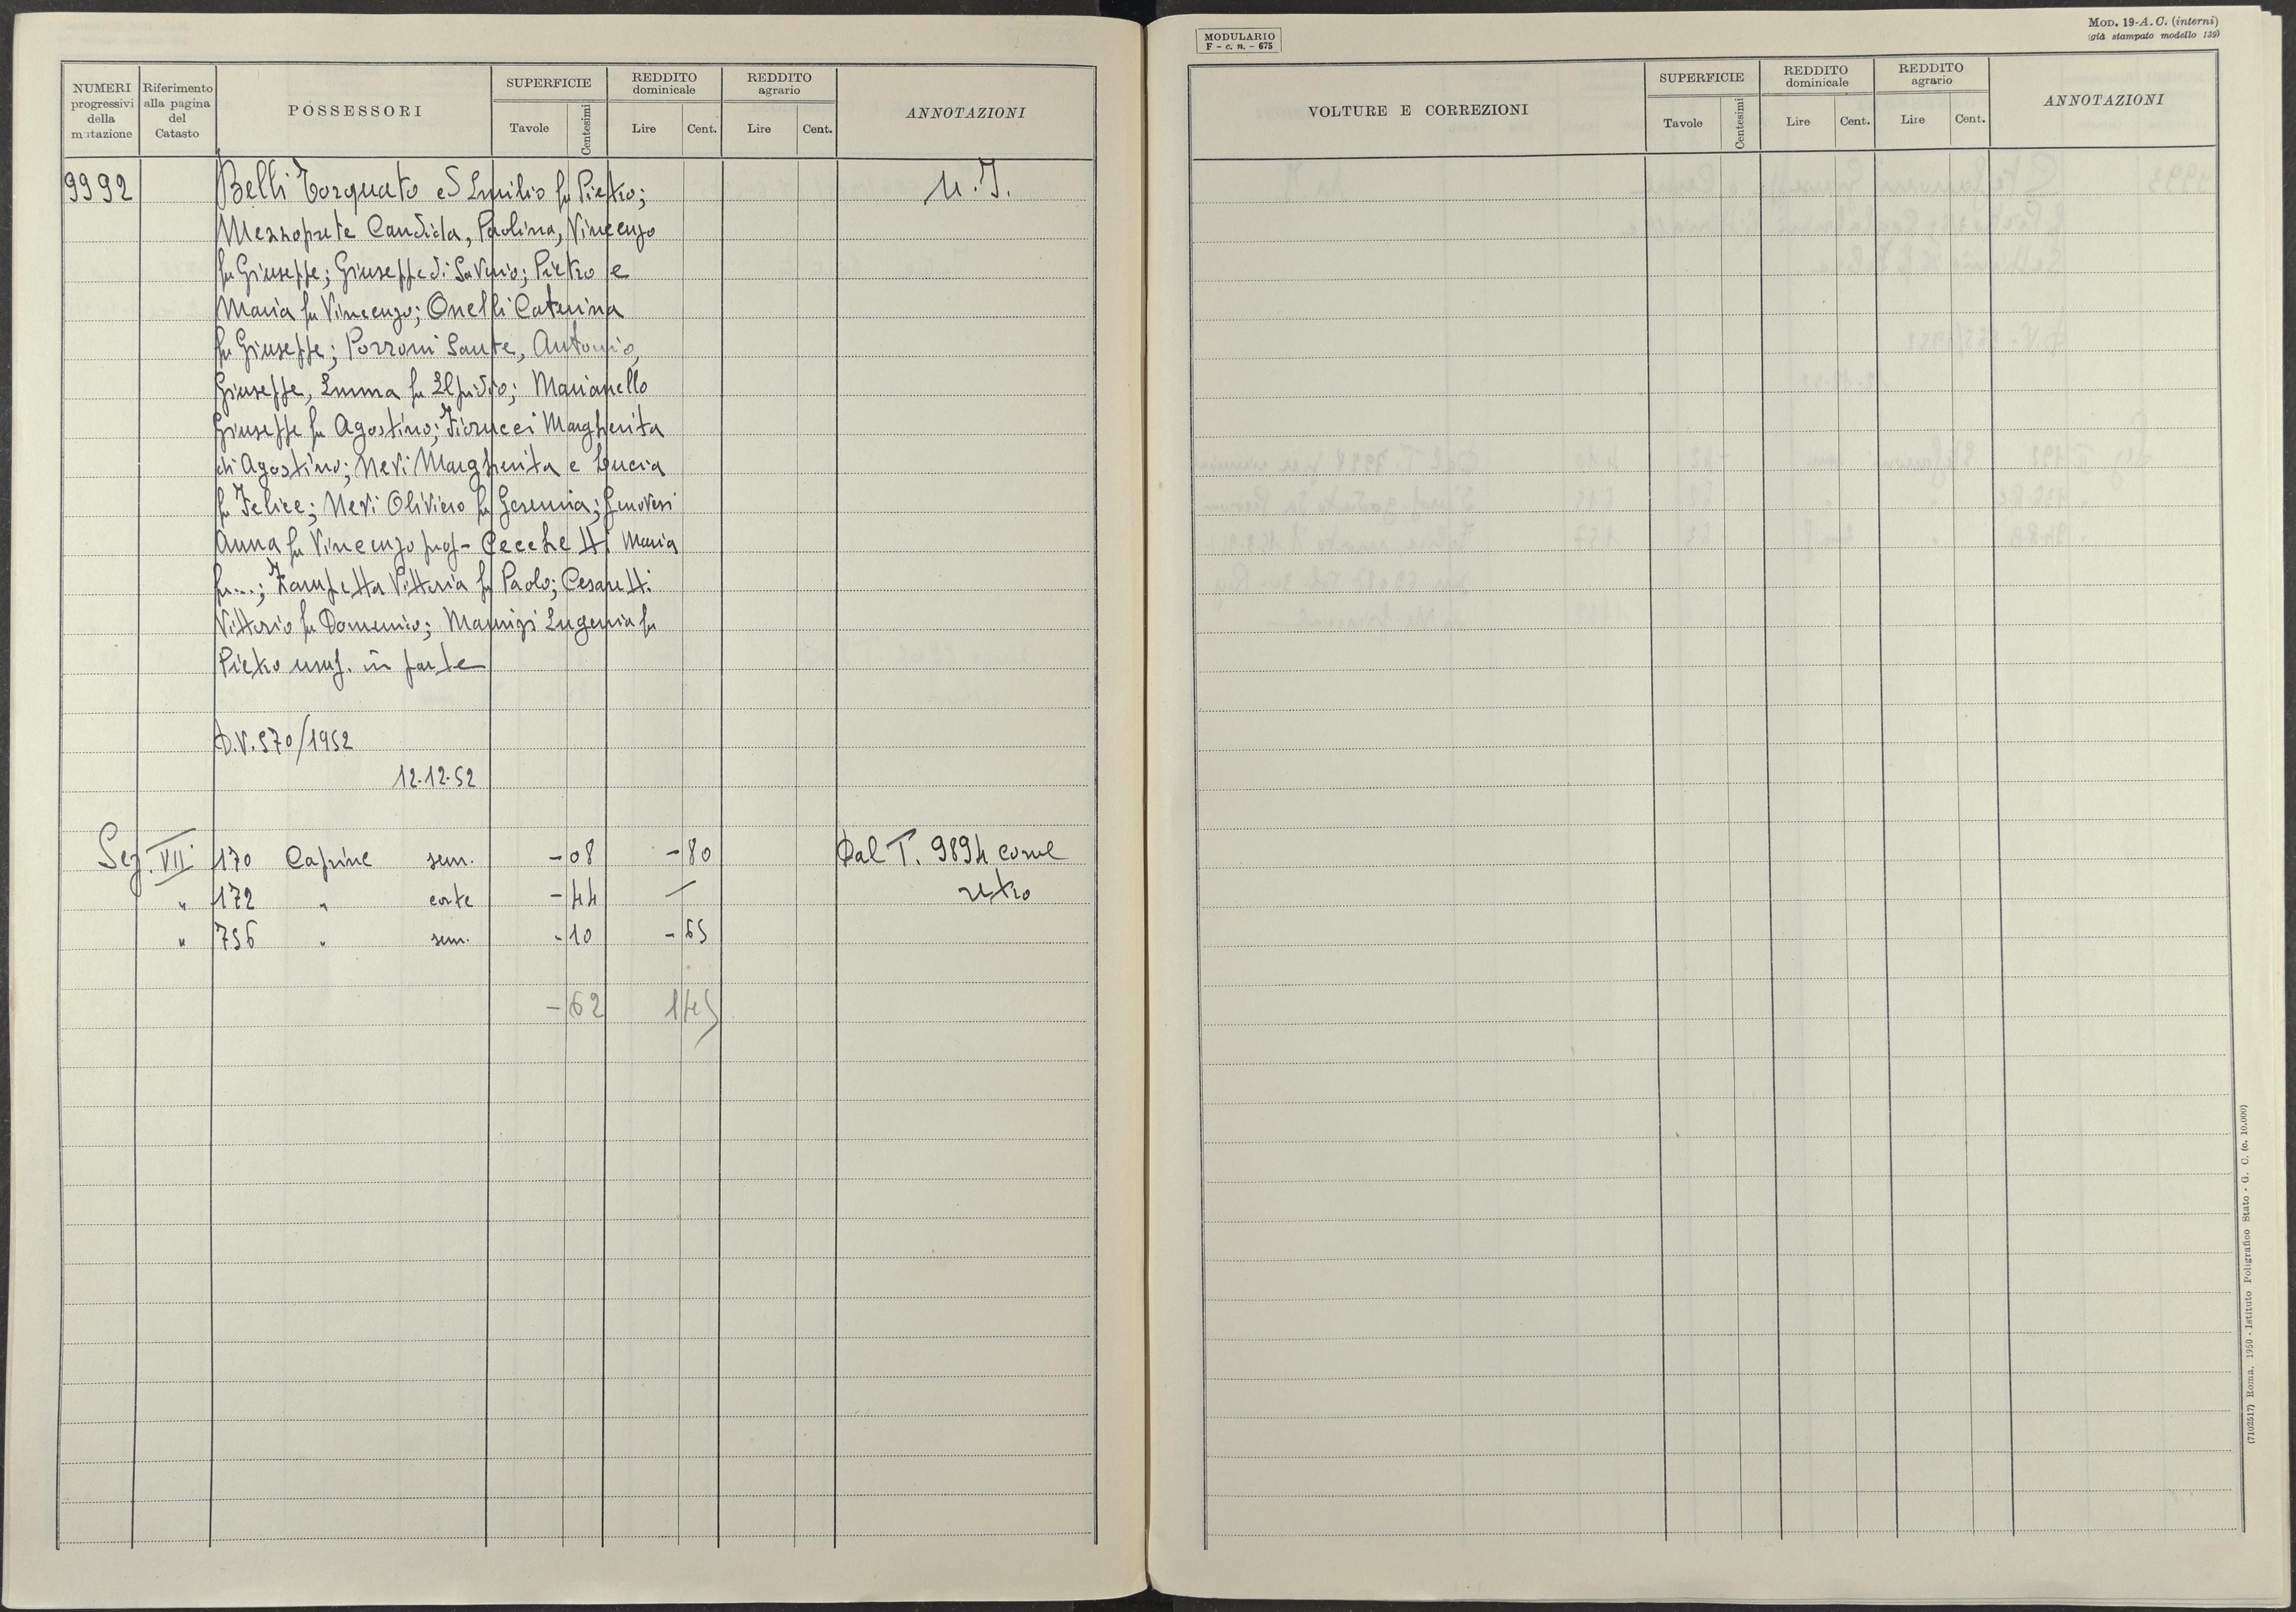 NUMERI progressivi della mutazione
Riferimento alla pagina del Catasto
POSSESSORI
SUPERFICIE
Tavole
Centesimi
REDDITO dominicale
Lire
Cent.
REDDITO agrario
Lire
Cent.
ANNOTAZIONI
9992 Belli Torquato ed Emilio fu Pietro; U.I.
Mezzoprete Candida, Paolina, Vincenzo
fu Giuseppe; Giuseppe di Saverio; Pietro e
Maria fu Vincenzo; Onelli Caterina
fu Giuseppe; Porroni Sante, Antonio,
Giuseppe, Emma fu Elpidio; Marianello
Giuseppe fu Agostino; Fiorucci Margherita
di Agostino; Nevi Margherita e Lucia
fu Felice; Nevi Oliviero fu Geremia; Genovesi
Anna fu Vincenzo prop- Cecchetti Maria
fu...; Zampetta Vittoria fu Paolo; Cesaretti
Vittorio fu Domenico; Maurizi Eugenia fu
Pietro usuf. in parte
D.V. 570/1952
12-12-52
Sez. VII 170 Caprine sem. - 08 - 80 Dal T. 9894 come
" 172 " corte - 44 - retro
" 756 " sem. - 10 - 65
- 62 1 45
MODULARIO
F - c. n. - 675
MOD. 19-A. C. (interni)
(già stampato modello 139)
VOLTURE E CORREZIONI
SUPERFICIE
Tavole
Centesimi
REDDITO dominicale
Lire
Cent.
REDDITO agrario
Lire
Cent.
ANNOTAZIONI
(7102517) Roma, 1950 - Istituto Poligrafico Stato - G. C. (c. 10.000)